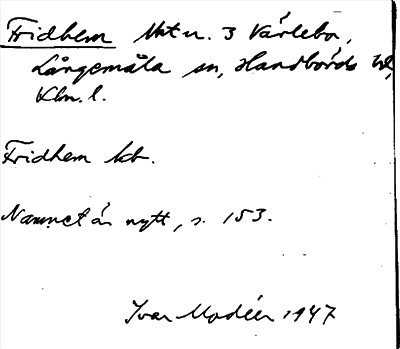 Fridhem Mtu. 3 Värlebo,
Långemåla sn, Handbörds hd,
Klm. l.
Fridhem kb.
Namnet är nytt, s. 153.
Ivar Modéer 1947